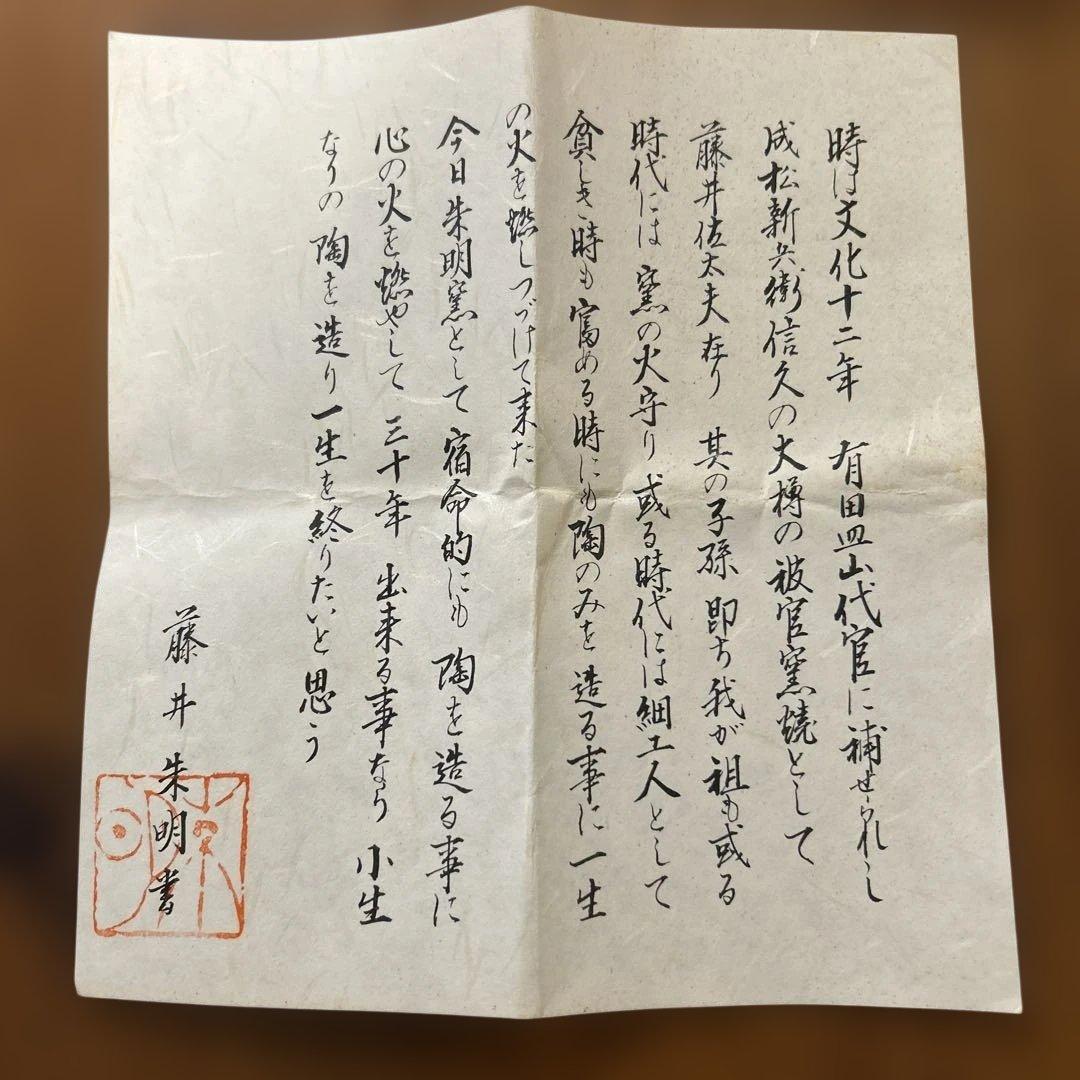 時は文化十二年 有田皿山代官に補せられし
成松新兵衛信久の大樽の被官窯焼として
藤井佐太夫在り 其の子孫即ち我が祖も或る
時代には窯の火守り或る時代には細工人として
貧しき時も富める時にも陶のみを造る事に一生
の火を燃しつづけて来た
今日朱明窯として宿命的にも陶を造る事に
心の火を燃やして 三十年 出来る事なり 小生
なりの陶を造り一生を終りたいと思う
藤井朱明書